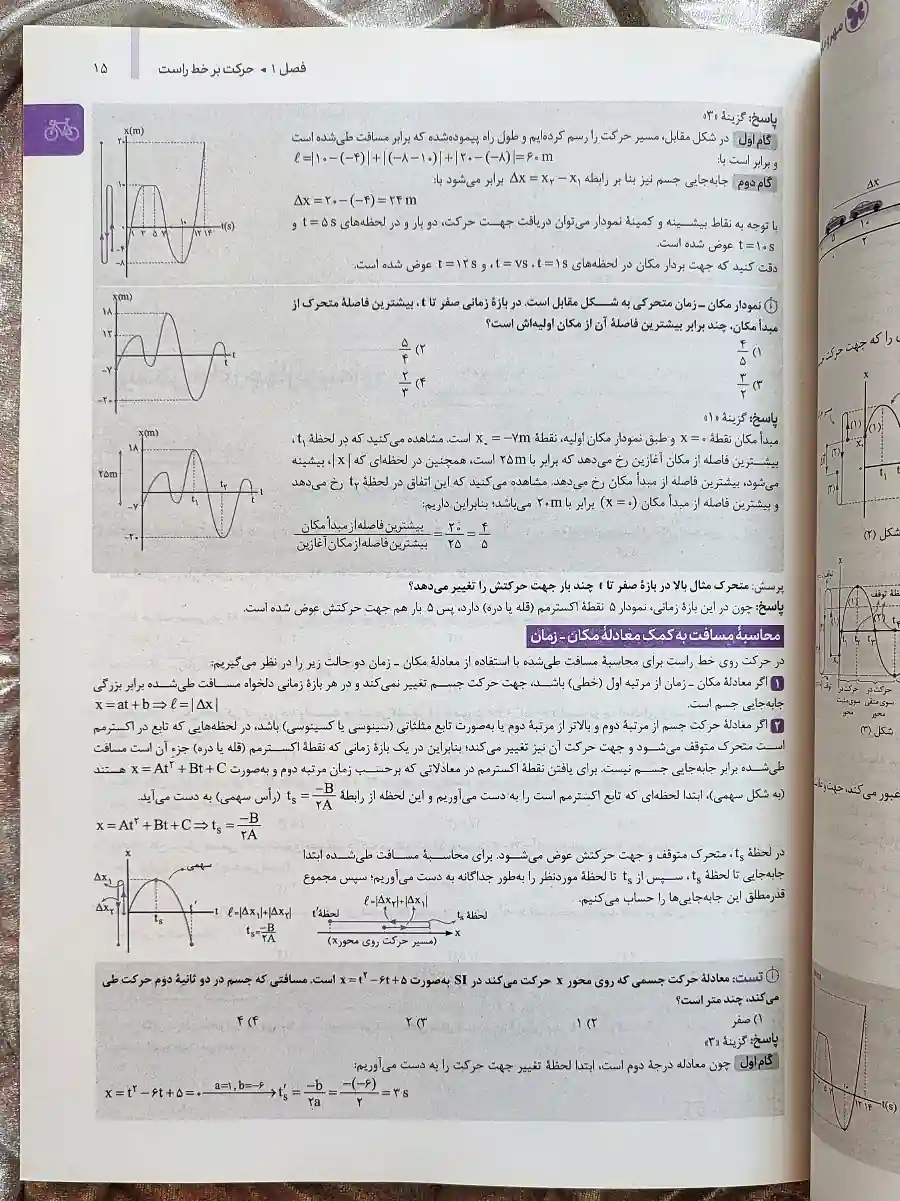 فصل ۱ ◂ حرکت بر خط راست
۱۵
پاسخ: گزینهٔ «۳»
گام اول در شکل مقابل، مسیر حرکت را رسم کرده‌ایم و طول راه پیموده‌شده که برابر مسافت طی‌شده است
و برابر است با:
ℓ=|۱۰−(−۴)|+|(−۸−۱۰)|+|۲۰−(−۸)|=۶۰ m
گام دوم جابه‌جایی جسم نیز بنا بر رابطه Δx = x₂ − x₁ برابر می‌شود با:
Δx = ۲۰−(−۴) = ۲۴ m
با توجه به نقاط بیشینه و کمینهٔ نمودار می‌توان دریافت جهت حرکت، دو بار و در لحظه‌های t = ۵ s و
t = ۱۰ s عوض شده است.
دقت کنید که جهت بردار مکان در لحظه‌های t = ۱s، t = ۷s، و t = ۱۲s عوض شده است.
x(m)
۲۰
۱۰
−۴
−۸
۸ ۳ ۵ ۷ ۱۰ ۱۲ ۱۴
t(s)
نمودار مکان ـ زمان متحرکی به شکل مقابل است. در بازهٔ زمانی صفر تا t، بیشترین فاصلهٔ متحرک از
مبدأ مکان، چند برابر بیشترین فاصلهٔ آن از مکان اولیه‌اش است؟
۱) ۴/۵
۲) ۵/۴
۳) ۳/۲
۴) ۲/۳
x(m)
۱۸
۱۲
−۷
−۲۰
t
t
پاسخ: گزینهٔ «۱»
مبدأ مکان نقطهٔ x = ۰ و طبق نمودار مکان اولیه، نقطهٔ x₀ = −۷m است. مشاهده می‌کنید که در لحظهٔ t₁،
بیشترین فاصله از مکان آغازین رخ می‌دهد که برابر با ۲۵m است، همچنین در لحظه‌ای که |x|، بیشینه
می‌شود، بیشترین فاصله از مبدأ مکان رخ می‌دهد. مشاهده می‌کنید که این اتفاق در لحظهٔ t₂ رخ می‌دهد
و بیشترین فاصله از مبدأ مکان (x = ۰) برابر با ۲۰m می‌باشد؛ بنابراین داریم:
بیشترین فاصله از مبدأ مکان / بیشترین فاصله از مکان آغازین = ۲۰/۲۵ = ۴/۵
x(m)
۱۸
۲۵m
−۷
−۲۰
t₁
t₂
t
پرسش: متحرک مثال بالا در بازهٔ صفر تا t چند بار جهت حرکتش را تغییر می‌دهد؟
پاسخ: چون در این بازهٔ زمانی، نمودار ۵ نقطهٔ اکسترمم (قله یا دره) دارد، پس ۵ بار هم جهت حرکتش عوض شده است.
محاسبهٔ مسافت به کمک معادلهٔ مکان ـ زمان
در حرکت روی خط راست برای محاسبهٔ مسافت طی‌شده با استفاده از معادلهٔ مکان ـ زمان دو حالت زیر را در نظر می‌گیریم:
۱ اگر معادلهٔ مکان ـ زمان از مرتبه اول (خطی) باشد، جهت حرکت جسم تغییر نمی‌کند و در هر بازهٔ زمانی دلخواه مسافت طی‌شده برابر بزرگی
جابه‌جایی جسم است.
x = at + b ⇒ ℓ = |Δx|
۲ اگر معادلهٔ حرکت جسم از مرتبهٔ دوم و بالاتر از مرتبهٔ دوم یا به‌صورت تابع مثلثاتی (سینوسی یا کسینوسی) باشد، در لحظه‌هایی که تابع در اکسترمم
است متحرک متوقف می‌شود و جهت حرکت آن نیز تغییر می‌کند؛ بنابراین در یک بازهٔ زمانی که نقطهٔ اکسترمم (قله یا دره) جزء آن است مسافت
طی‌شده برابر جابه‌جایی جسم نیست. برای یافتن نقطهٔ اکسترمم در معادلاتی که برحسب زمان مرتبه دوم و به‌صورت x = At² + Bt + C هستند
(به شکل سهمی)، ابتدا لحظه‌ای که تابع اکسترمم است را به دست می‌آوریم و این لحظه از رابطهٔ tₛ = −B/۲A (رأس سهمی) به دست می‌آید.
x = At² + Bt + C ⇒ tₛ = −B/۲A
در لحظهٔ tₛ، متحرک متوقف و جهت حرکتش عوض می‌شود. برای محاسبهٔ مسافت طی‌شده ابتدا
جابه‌جایی تا لحظهٔ tₛ، سپس از tₛ تا لحظهٔ موردنظر را به‌طور جداگانه به دست می‌آوریم؛ سپس مجموع
قدرمطلق این جابه‌جایی‌ها را حساب می‌کنیم.
x
سهمی
Δx₁
Δx₂
tₛ
t′
t
ℓ=|Δx₁|+|Δx₂|
tₛ = −B/۲A
ℓ=|Δx₂|+|Δx₁|
لحظهٔ t′
لحظهٔ tₛ
x
(مسیر حرکت روی محور x)
تست: معادلهٔ حرکت جسمی که روی محور x حرکت می‌کند در SI به‌صورت x = t² − ۶t + ۵ است. مسافتی که جسم در دو ثانیهٔ دوم حرکت طی
می‌کند، چند متر است؟
۱) صفر
۲) ۱
۳) ۲
۴) ۴
پاسخ: گزینهٔ «۳»
گام اول چون معادله درجهٔ دوم است، ابتدا لحظهٔ تغییر جهت حرکت را به دست می‌آوریم:
x = t² − ۶t + ۵ = ۰ a=۱, b=−۶ → t′ₛ = −b/۲a = −(−۶)/۲ = ۳ s
Δx
شکل (۲)
شکل (۳)
t(s)